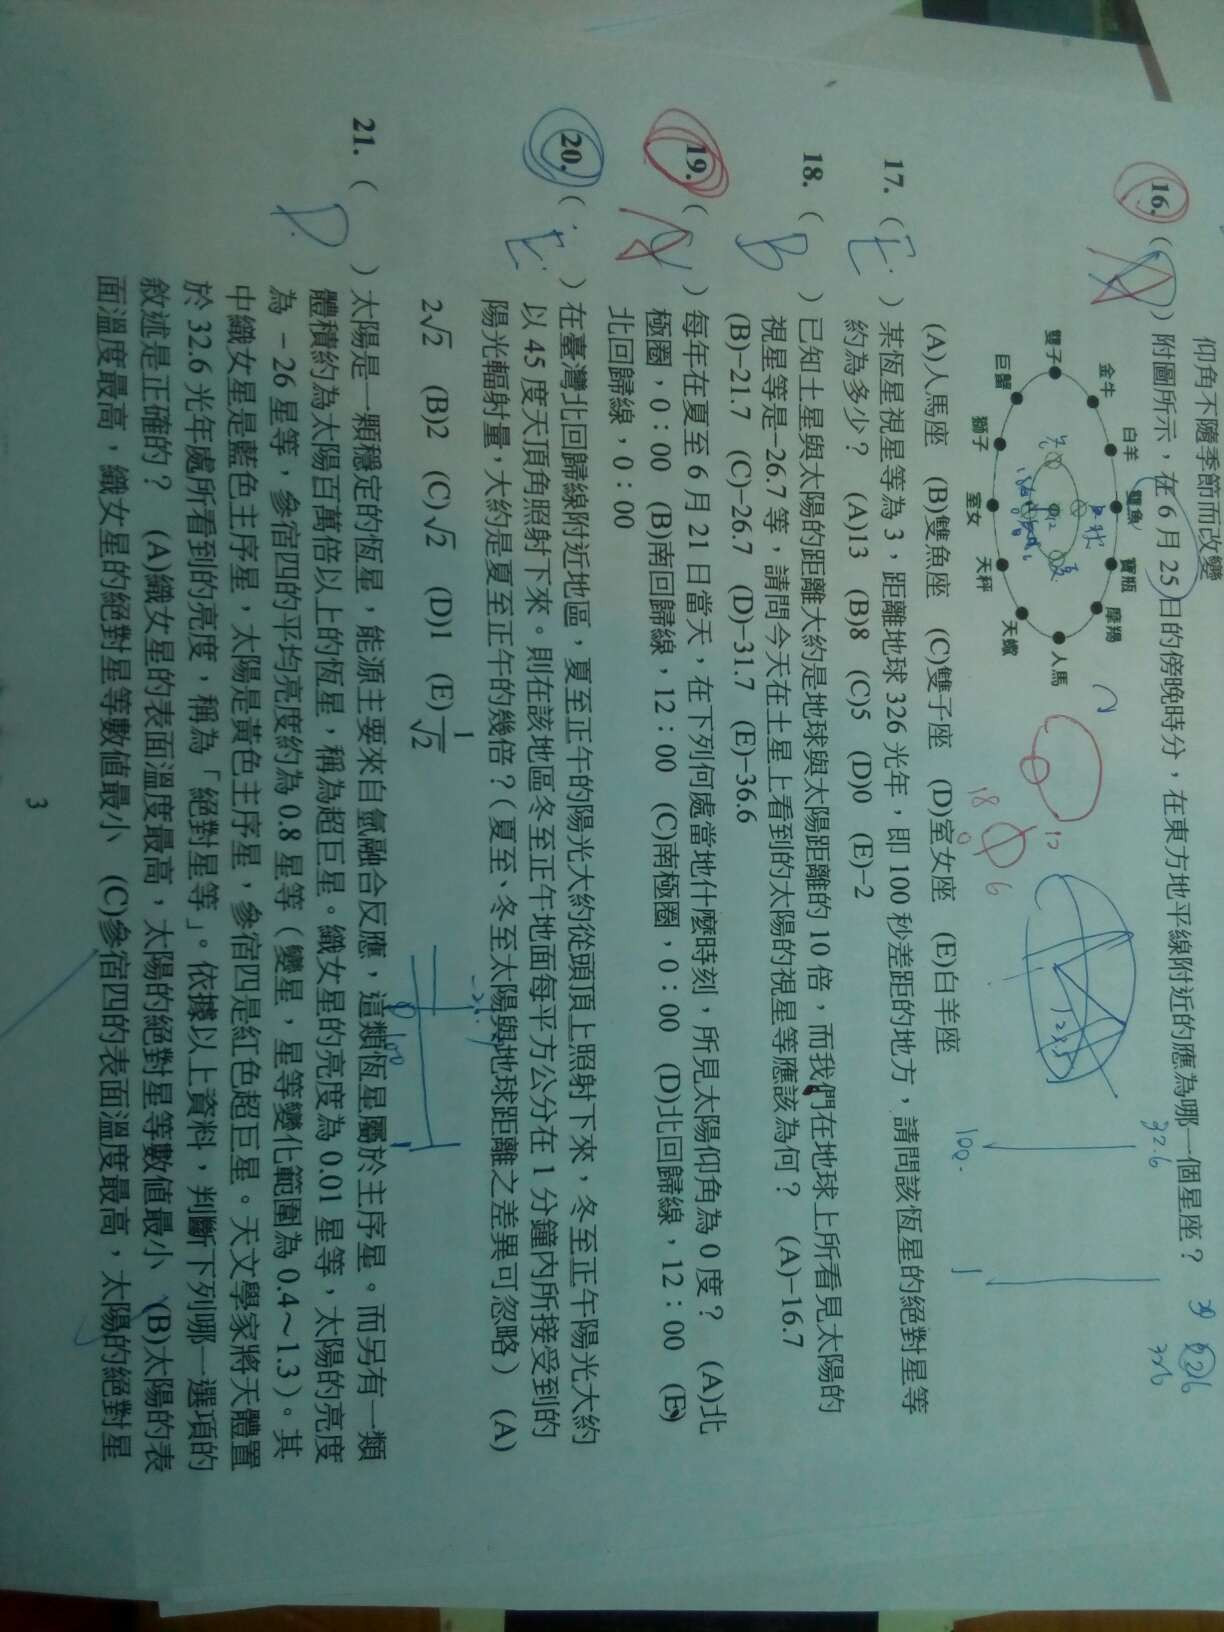 仰角不隨季節而改變
16. ( ) 附圖所示，在 6 月 25 日的傍晚時分，在東方地平線附近的應為哪一個星座？
雙子
金牛
白羊
雙魚
寶瓶
摩羯
巨蟹
獅子
室女
天秤
天蠍
人馬
32.6
326
18
0
12
6
100
1
(A)人馬座 (B)雙魚座 (C)雙子座 (D)室女座 (E)白羊座
17. ( E ) 某恆星視星等為 3，距離地球 326 光年，即 100 秒差距的地方，請問該恆星的絕對星等
約為多少？ (A)13 (B)8 (C)5 (D)0 (E)−2
18. ( B ) 已知土星與太陽的距離大約是地球與太陽距離的 10 倍，而我們在地球上所看見太陽的
視星等是−26.7 等，請問今天在土星上看到的太陽的視星等應該為何？ (A)−16.7
(B)−21.7 (C)−26.7 (D)−31.7 (E)−36.6
19. ( ) 每年在夏至 6 月 21 日當天，在下列何處當地什麼時刻，所見太陽仰角為 0 度？ (A)北
極圈，0：00 (B)南回歸線，12：00 (C)南極圈，0：00 (D)北回歸線，12：00 (E)
北回歸線，0：00
20. ( E ) 在臺灣北回歸線附近地區，夏至正午的陽光大約從頭頂上照射下來，冬至正午陽光大約
以 45 度天頂角照射下來。則在該地區冬至正午地面每平方公分在 1 分鐘內所接受到的
陽光輻射量，大約是夏至正午的幾倍？（夏至、冬至太陽與地球距離之差異可忽略） (A)
2√2 (B)2 (C)√2 (D)1 (E)1/√2
21. ( D ) 太陽是一顆穩定的恆星，能源主要來自氫融合反應，這類恆星屬於主序星。而另有一類
體積約為太陽百萬倍以上的恆星，稱為超巨星。織女星的亮度為 0.01 星等，太陽的亮度
為 −26 星等，參宿四的平均亮度約為 0.8 星等（變星，星等變化範圍為 0.4～1.3）。其
中織女星是藍色主序星，太陽是黃色主序星，參宿四是紅色超巨星。天文學家將天體置
於 32.6 光年處所看到的亮度，稱為「絕對星等」。依據以上資料，判斷下列哪一選項的
敘述是正確的？ (A)織女星的表面溫度最高，太陽的絕對星等數值最小 (B)太陽的表
面溫度最高，織女星的絕對星等數值最小 (C)參宿四的表面溫度最高，太陽的絕對星
3